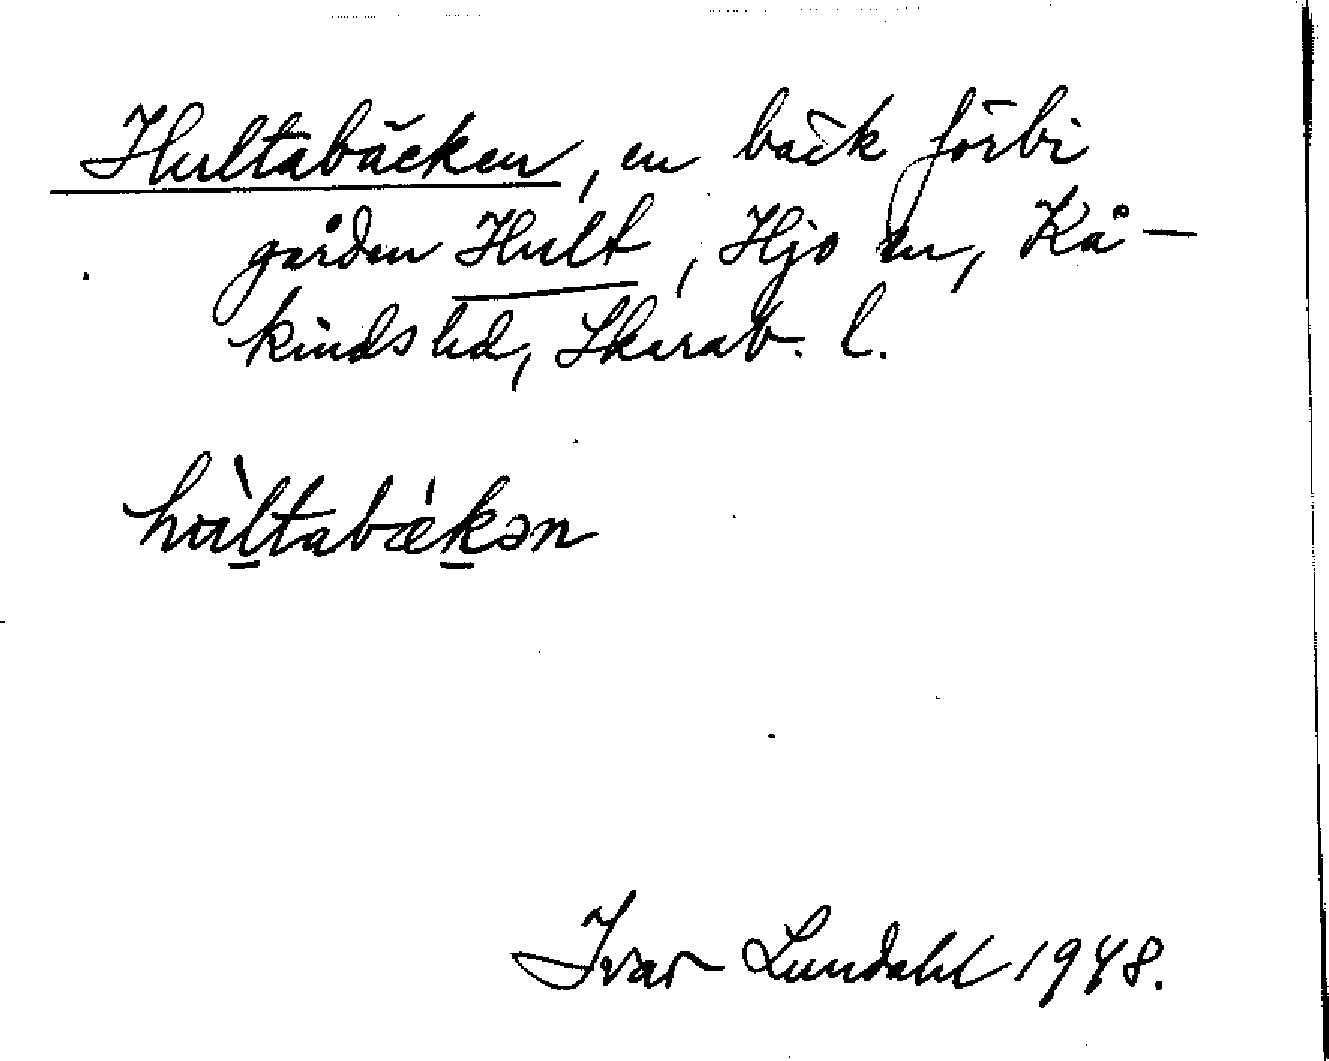 Hultabäcken, en bäck förbi
gården Hult, Hjo ln, Kå-
kinds hd, Skarab. l.
hu̇̀ltabǽkən
Ivar Lundahl 1948.